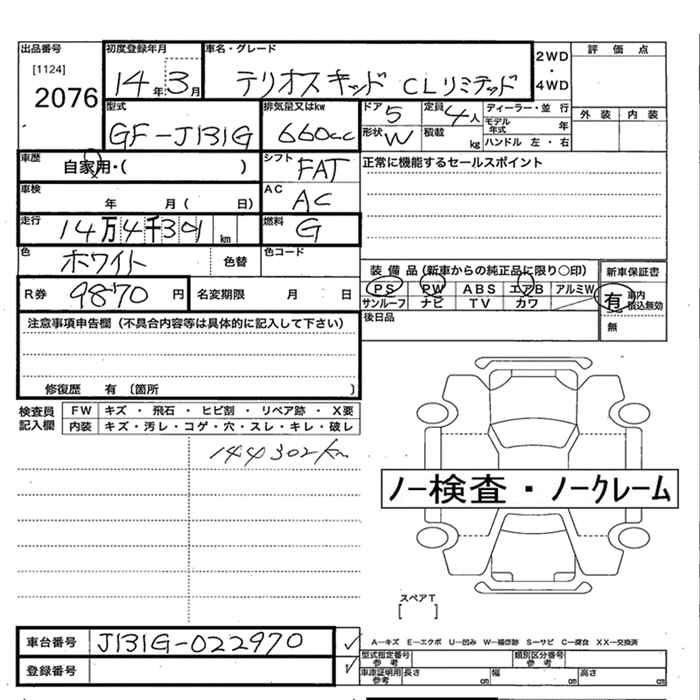 出品番号 初度登録年月 車名・グレード 2WD ・ 4WD 評価点
[1124]
2076 14年3月 テリオスキッド CLリミテッド
型式 排気量又はkw ドア 5 定員 4人 ディーラー・並行 外装 内装
GF-J131G 660cc 形状 W 積載 kg モデル年式 年
ハンドル 左・右
車歴 自家用・( ) シフト FAT 正常に機能するセールスポイント
車検 年 月( 日) AC AC
走行 14万4千301km 燃料 G
色 ホワイト 色替 色コード
装備品(新車からの純正品に限り○印) 新車保証書
R券 9870円 名変期限 月 日 PS PW ABS エアB アルミW 有 車内積込無効
サンルーフ ナビ TV カワ 無
注意事項申告欄(不具合内容等は具体的に記入して下さい) 後日品
修復歴 有 〔箇所 〕
検査員記入欄 FW キズ・飛石・ヒビ割・リペア跡・X要
内装 キズ・汚レ・コゲ・穴・スレ・キレ・破レ
144302km
ノー検査・ノークレーム
スペアT
[ ]
車台番号 J131G-022970 A―キズ E―エクボ U―凹み W―補修跡 S―サビ C―腐食 XX―交換済
登録番号 型式指定番号 参考 類別区分番号 参考
車庫証明用 参考 長さ cm 幅 cm 高さ cm